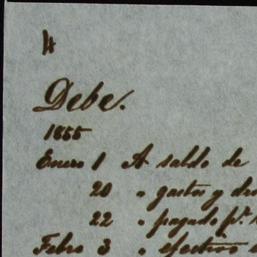 4
Debe.
1855
Enero 1 A saldo de
20 " gastos y
22 " pagado pr.
Febro 3 " efectivo